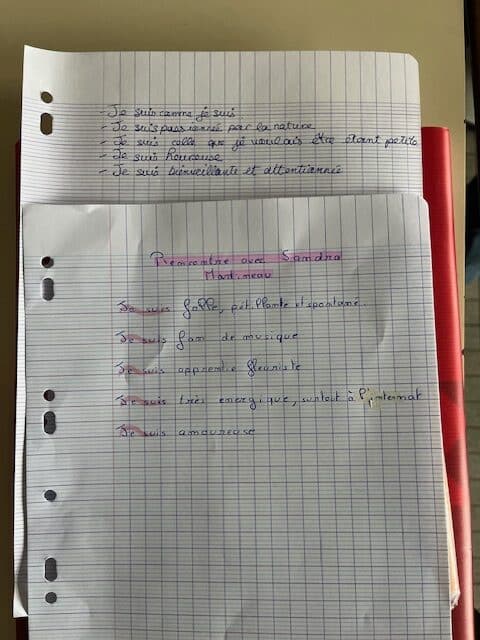 - Je suis comme je suis
- Je suis passionnée par la nature
- Je suis celle que je voulais être étant petite
- Je suis heureuse
- Je suis bienveillante et attentionnée
Rencontre avec Sandra
Martineau
Je suis folle, pétillante et spontané.
Je suis fan de musique
Je suis apprentie fleuriste
Je suis très energique, surtout à l'internat
Je suis amoureuse